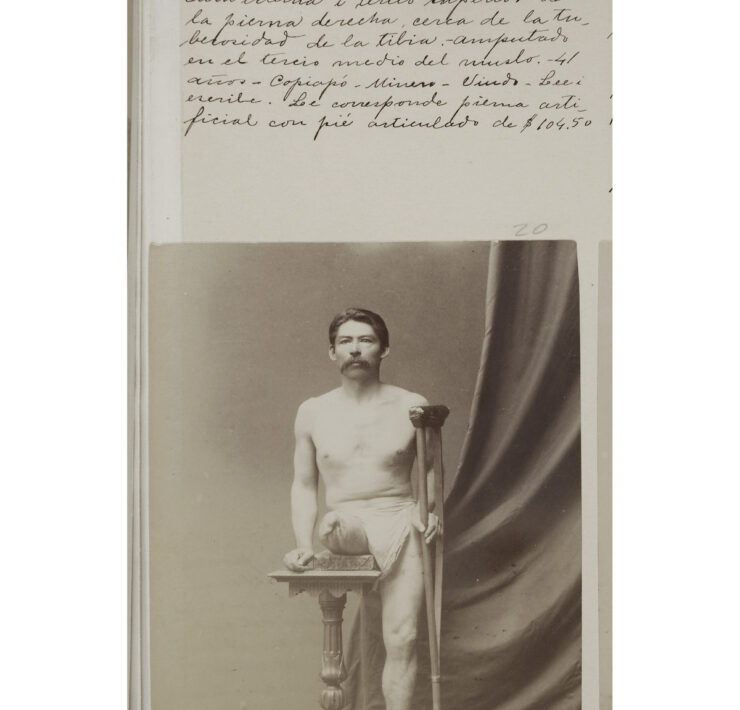 la pierna derecha, cerca de la tu-
berosidad de la tibia.-amputado
en el tercio medio del muslo.-41
años - Copiapó - Minero - Viudo - Lee i
escribe. Le corresponde pierna arti-
ficial con pié articulado de $104.50
20